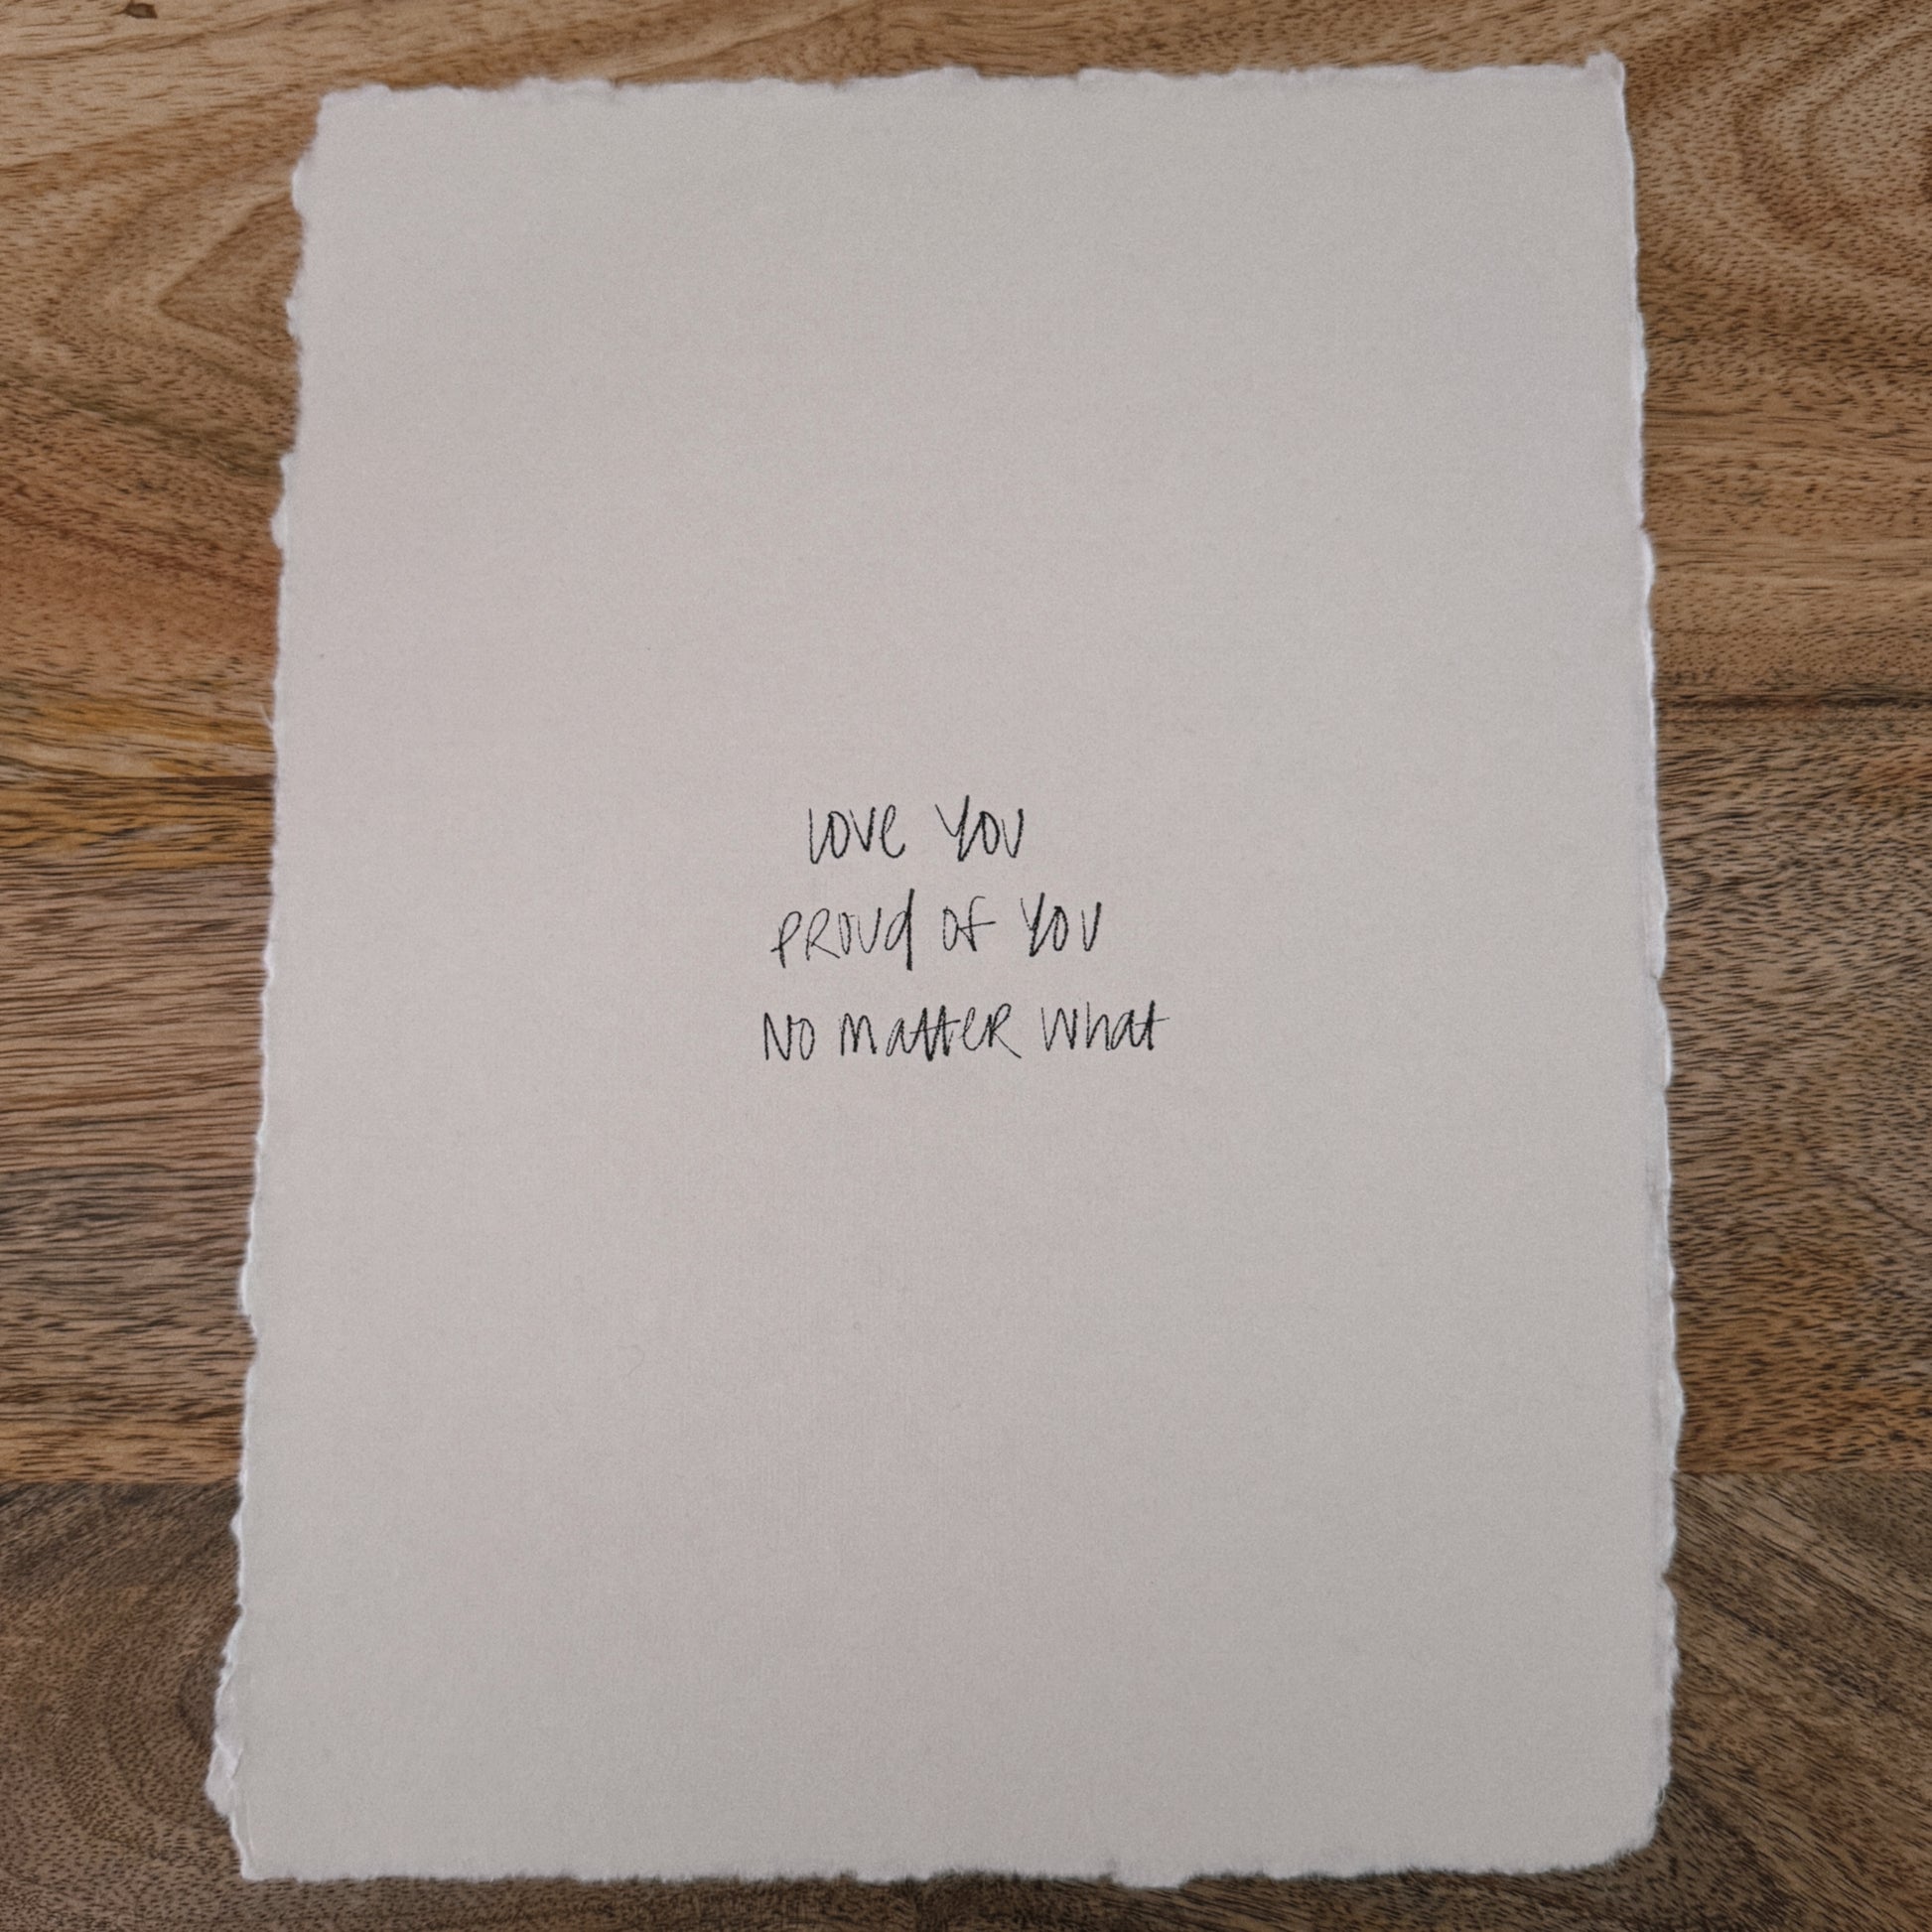 Love You
PROUd Of You
NO matteR What